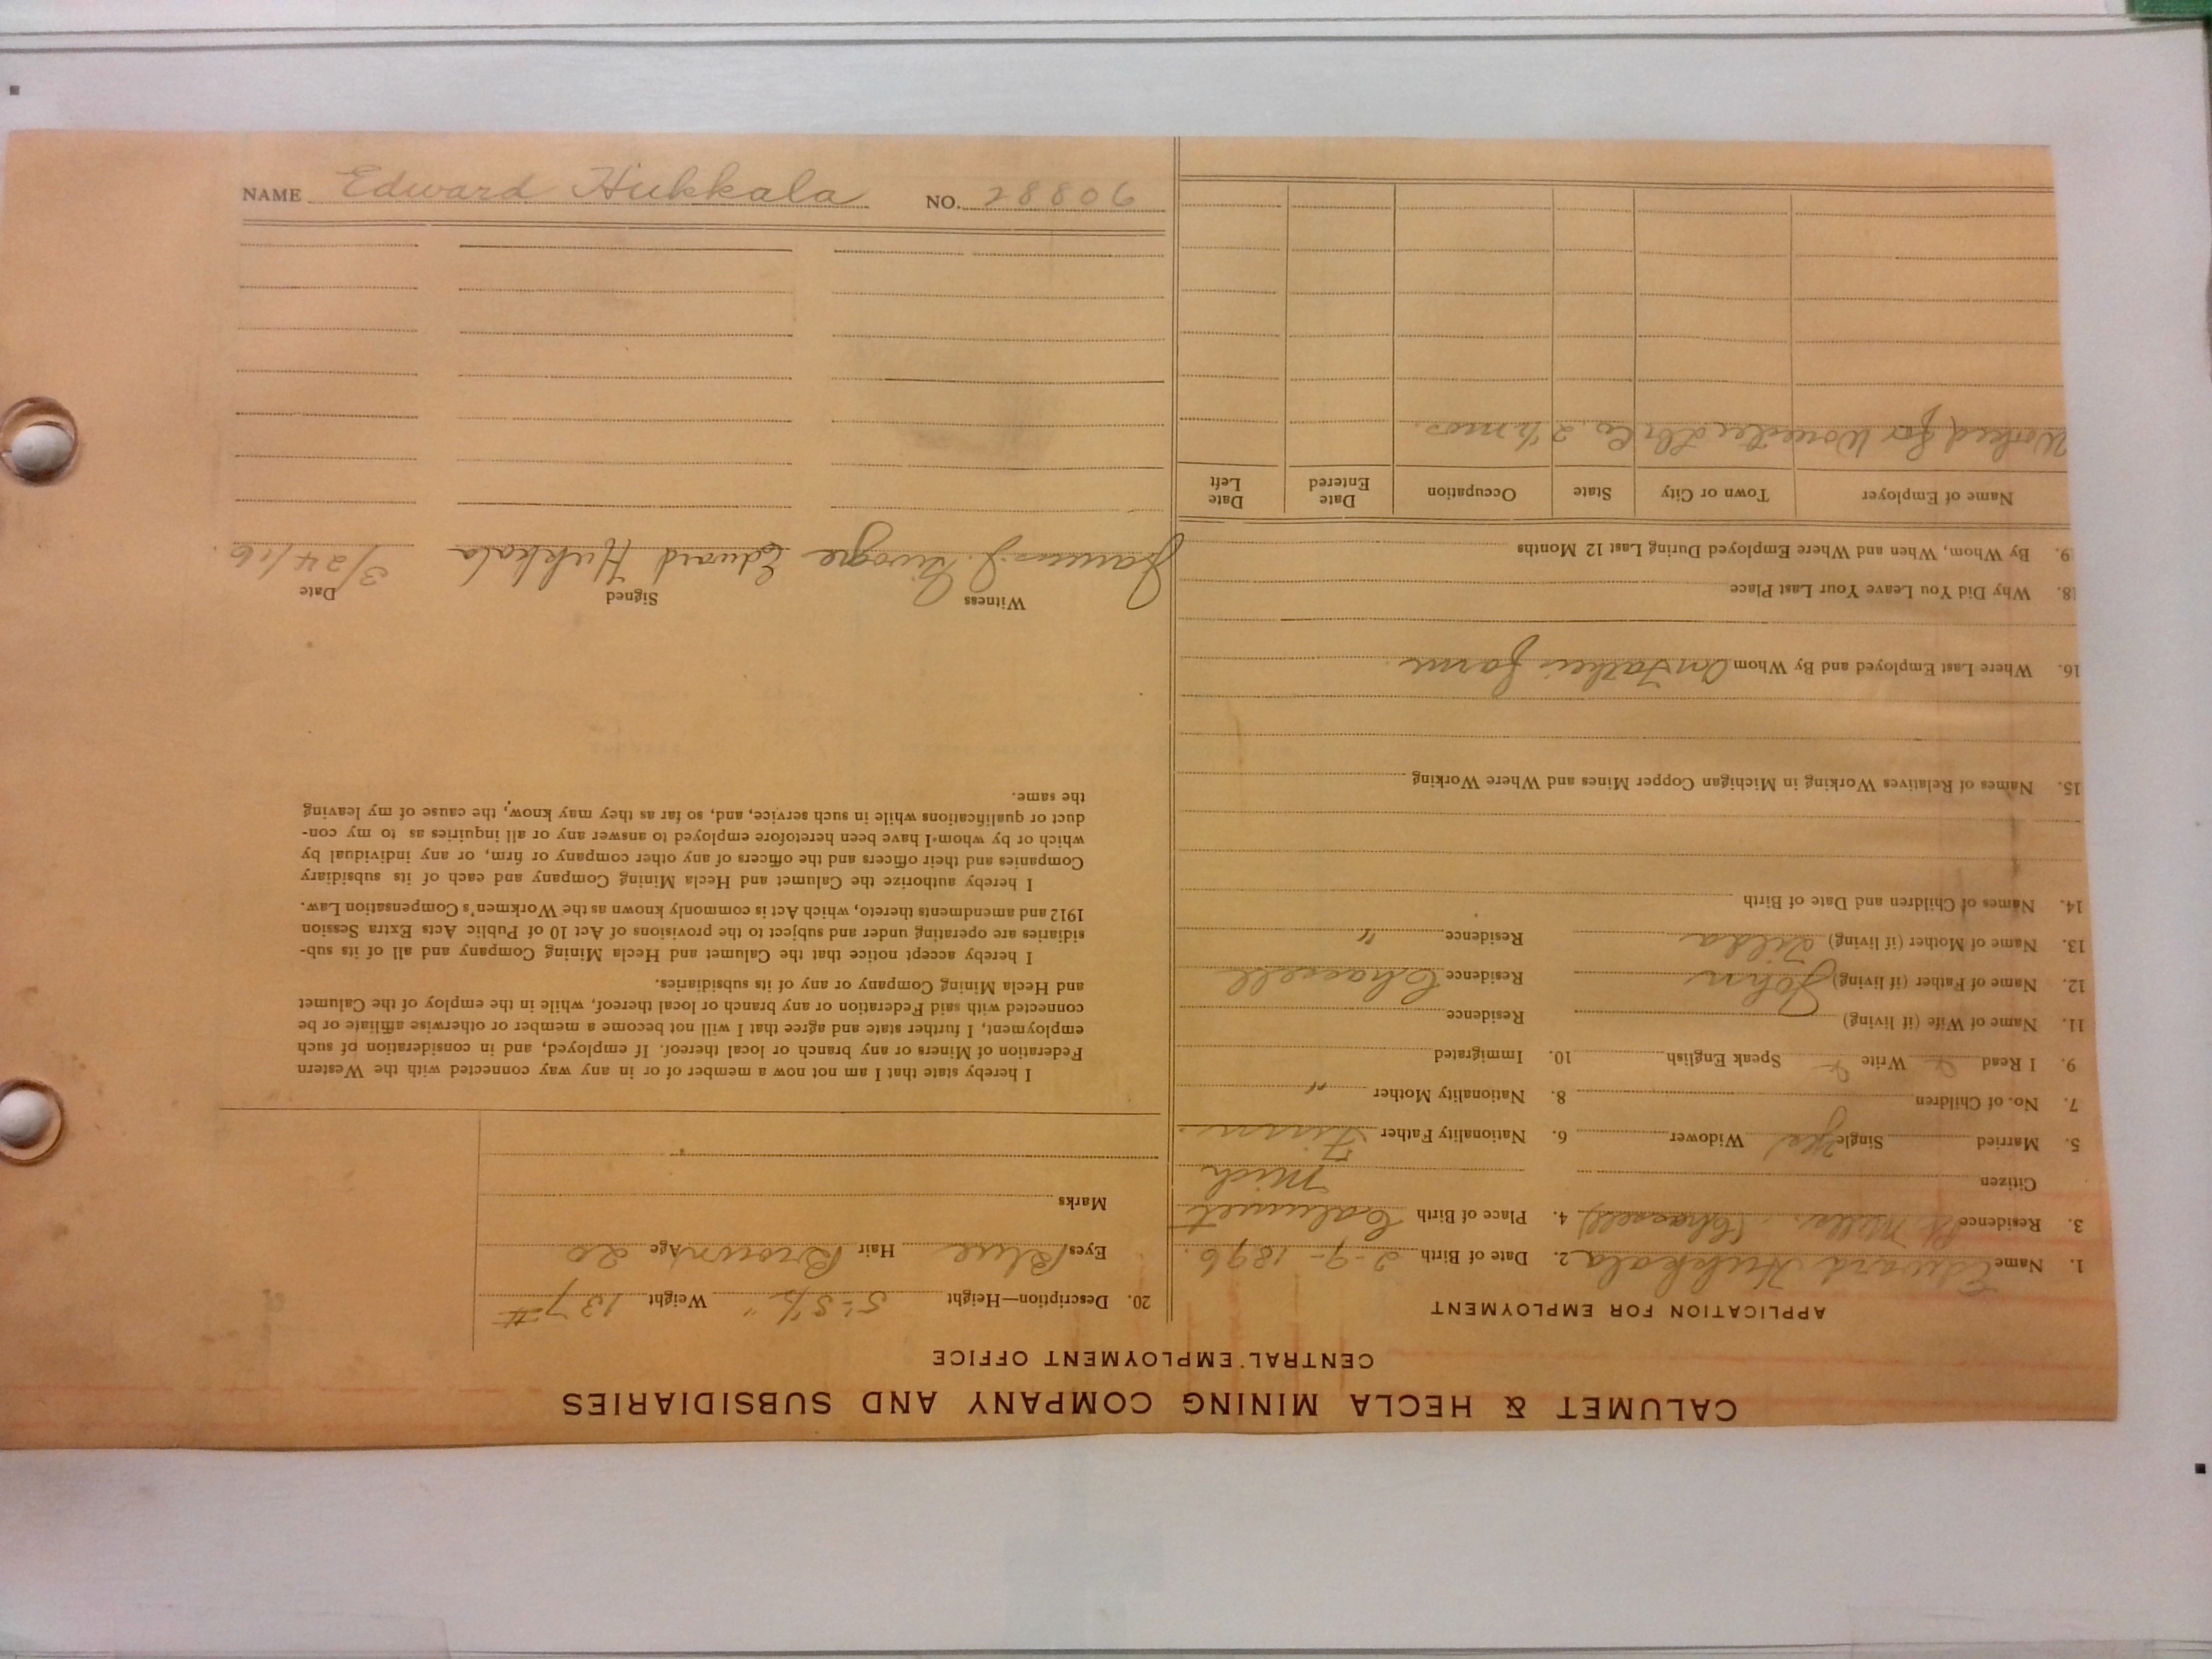 CALUMET & HECLA MINING COMPANY AND SUBSIDIARIES
CENTRAL EMPLOYMENT OFFICE
APPLICATION FOR EMPLOYMENT
1. Name Edward Hukkala 2. Date of Birth 2-9-1896.
3. Residence Pt Mills. (Chassell) 4. Place of Birth Calumet
Citizen Mich
5. Married Single Yes Widower 6. Nationality Father Finn.
7. No. of Children 8. Nationality Mother "
9. I Read Write Speak English 10. Immigrated
11. Name of Wife (if living) Residence
12. Name of Father (if living) John Residence Chassell
13. Name of Mother (if living) Residence "
14. Names of Children and Date of Birth
15. Names of Relatives Working in Michigan Copper Mines and Where Working
16. Where Last Employed and By Whom On Fathers farm.
18. Why Did You Leave Your Last Place
19. By Whom, When and Where Employed During Last 12 Months
Name of Employer Town or City State Occupation Date Entered Date Left
Worked for Worcester Lbr Co. 2 ½ mos.
20. Description—Height 5'-8½" Weight 137#
Eyes Blue Hair Brown Age 20
Marks
I hereby state that I am not now a member of or in any way connected with the Western
Federation of Miners or any branch or local thereof. If employed, and in consideration of such
employment, I further state and agree that I will not become a member or otherwise affiliate or be
connected with said Federation or any branch or local thereof, while in the employ of the Calumet
and Hecla Mining Company or any of its subsidiaries.
I hereby accept notice that the Calumet and Hecla Mining Company and all of its sub-
sidiaries are operating under and subject to the provisions of Act 10 of Public Acts Extra Session
1912 and amendments thereto, which Act is commonly known as the Workmen's Compensation Law.
I hereby authorize the Calumet and Hecla Mining Company and each of its subsidiary
Companies and their officers and the officers of any other company or firm, or any individual by
which or by whom I have been heretofore employed to answer any or all inquiries as to my con-
duct or qualifications while in such service, and, so far as they may know, the cause of my leaving
the same.
Witness Signed Date
James J. Edward Hukkala 3/24/16.
NAME Edward Hukkala NO. 28806